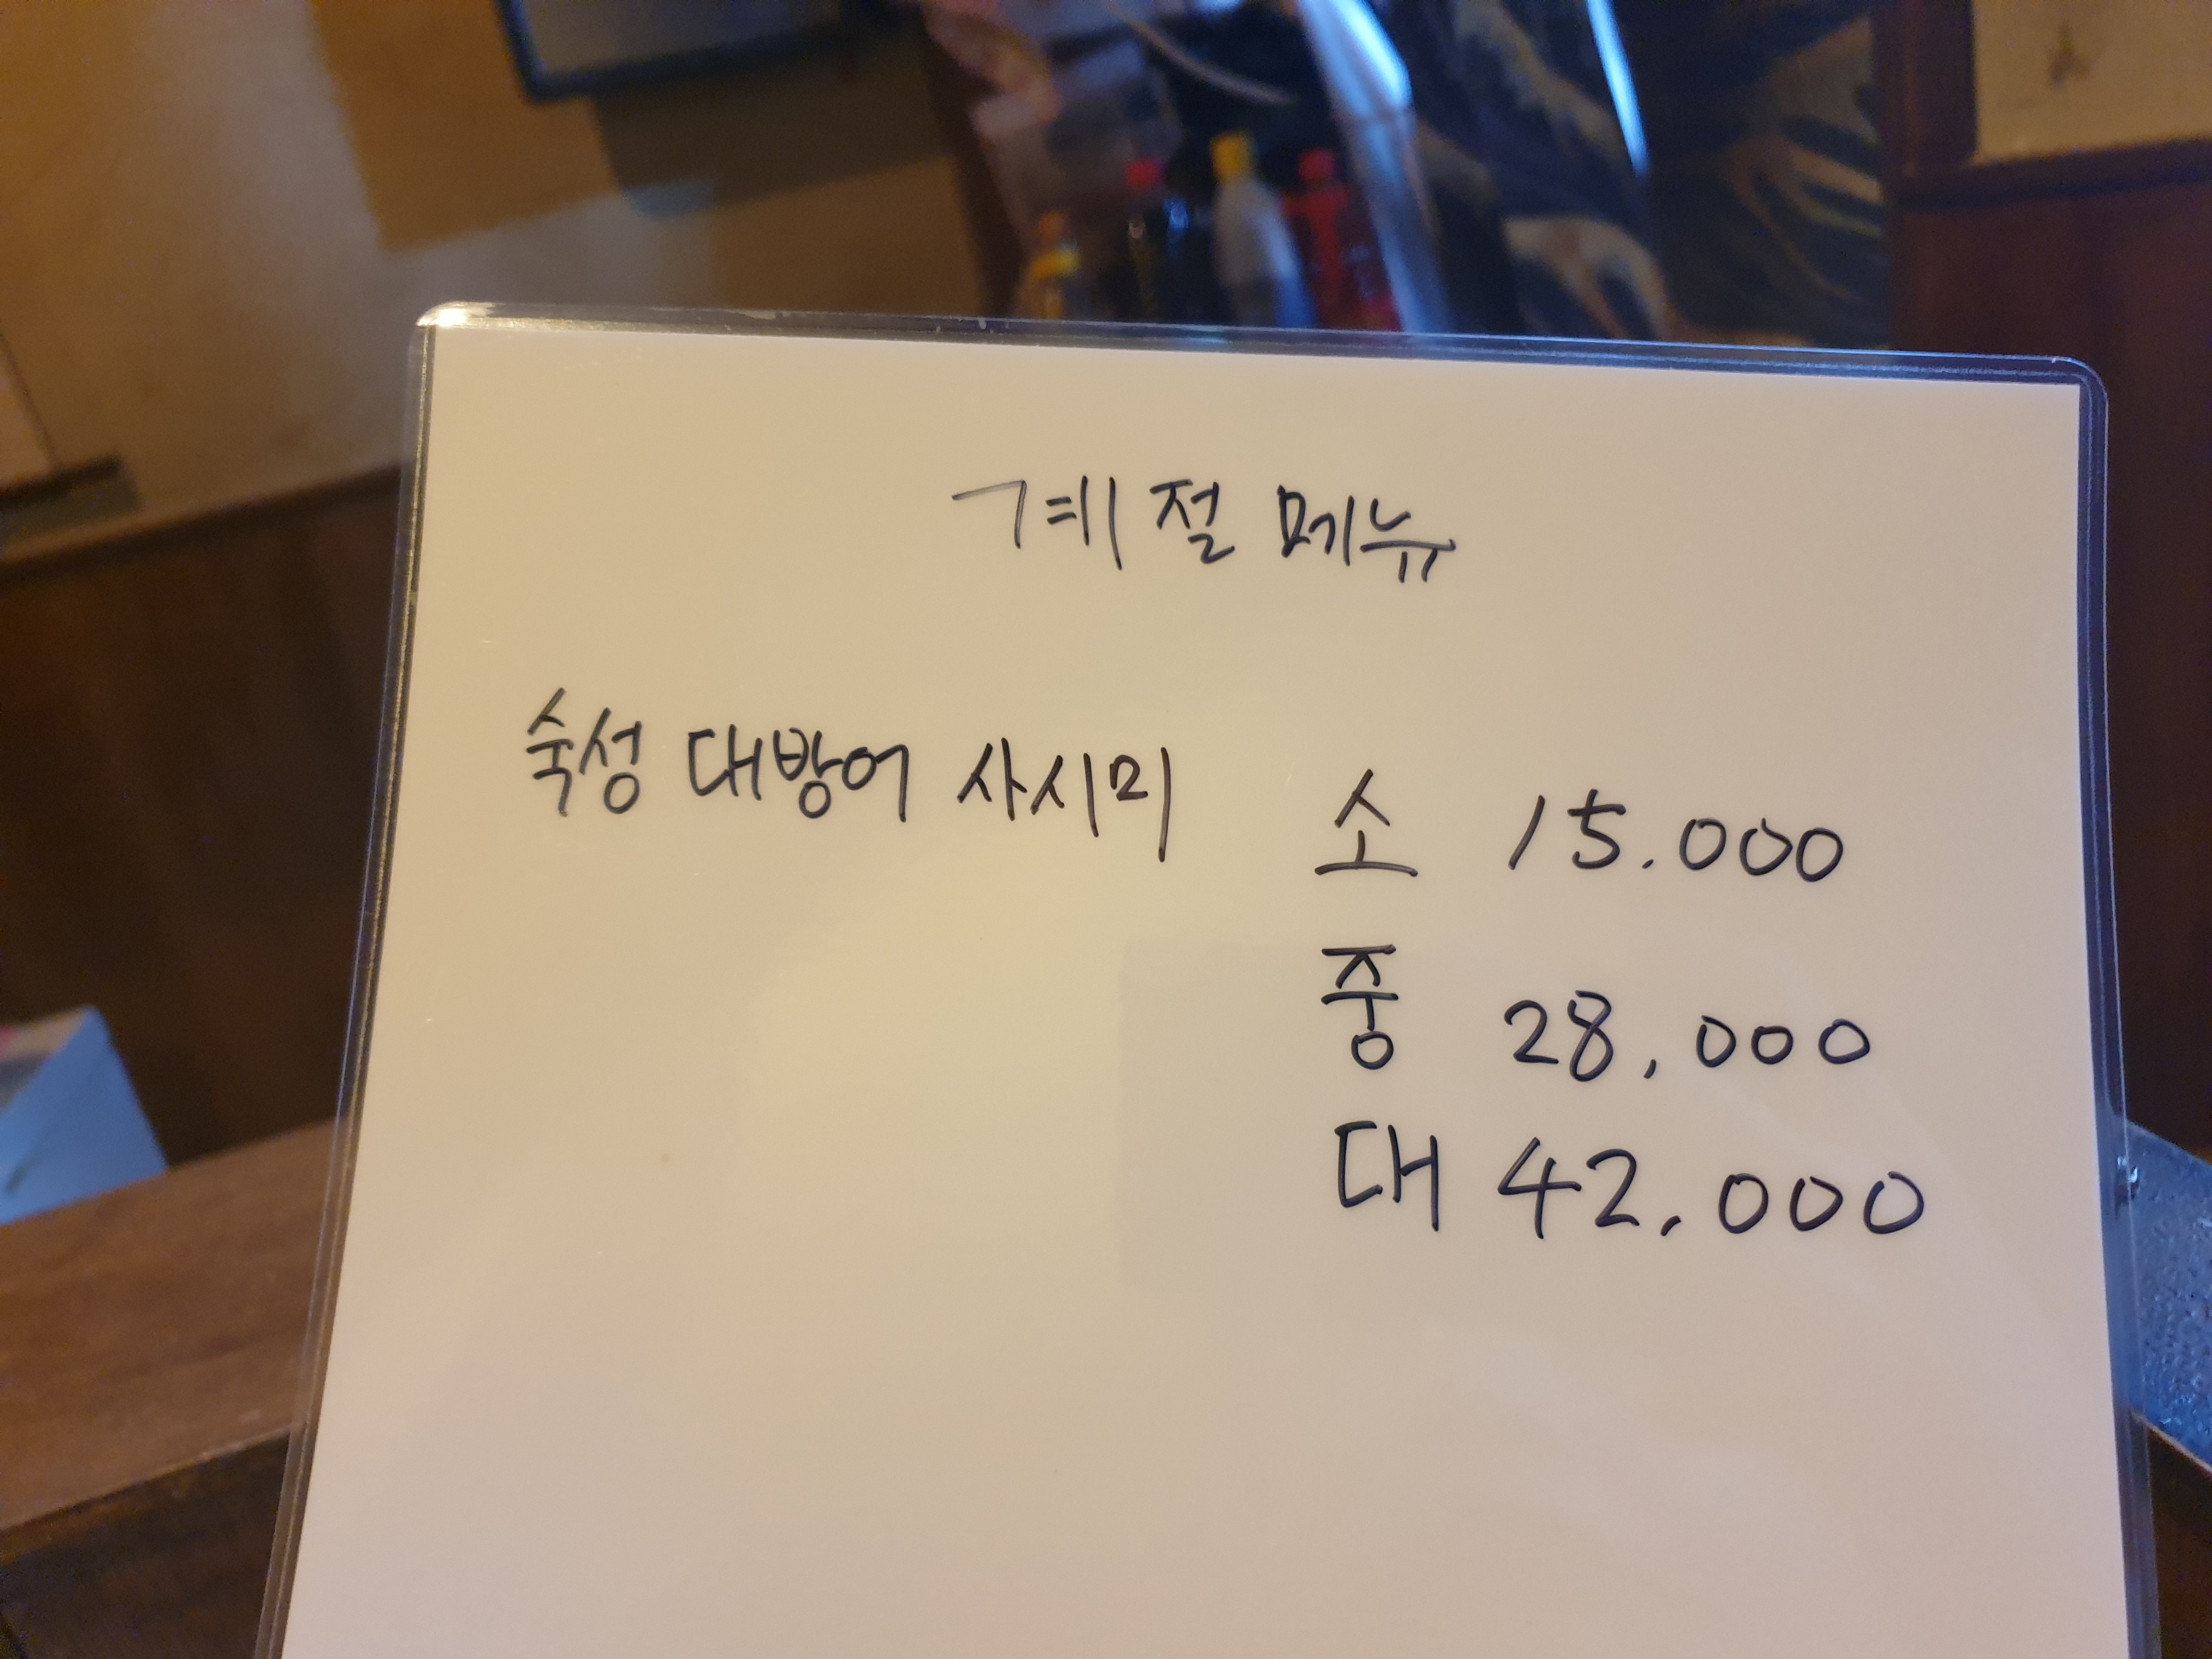 계절 메뉴
숙성 대방어 사시미 소 15.000
중 28,000
대 42,000